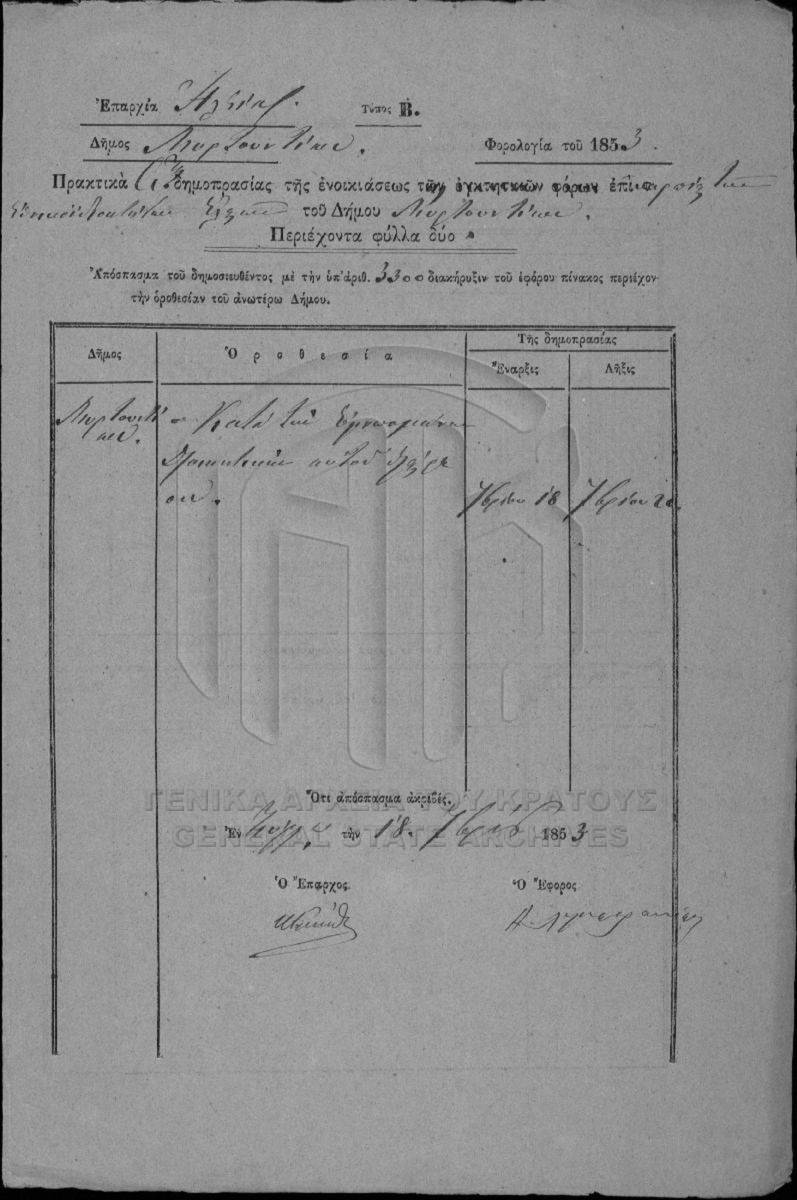 Ἐπαρχία Ἠλείας. Τύπος Β.
Δῆμος Μυρτουντίων. Φορολογία τοῦ 1853.
Πρακτικὰ δημοπρασίας τῆς ἐνοικιάσεως τῶν ἐγκτητικῶν φόρων ἐπὶ
τοῦ Δήμου Μυρτουντίων.
Περιέχοντα φύλλα δύο
Ἀπόσπασμα τοῦ δημοσιευθέντος μὲ τὴν ὑπ' ἀριθ. 3300 διακήρυξιν τοῦ ἐφόρου πίνακος περιέχον
τὴν ὁροθεσίαν τοῦ ἀνωτέρω Δήμου.
Τῆς δημοπρασίας
Δῆμος Ὁροθεσία Ἔναρξις Λῆξις
Μυρτουντίων. Κατὰ τὴν
αὐτοῦ
7βρίου 18 7βρίου 20.
Ὅτι ἀπόσπασμα ἀκριβές.
ΓΕΝΙΚΑ ΑΡΧΕΙΑ ΤΟΥ ΚΡΑΤΟΥΣ
Ἐν Πύργῳ, τὴν 18 7βρίου 1853
GENERAL STATE ARCHIVES
Ὁ Ἔπαρχος. Ὁ Ἔφορος